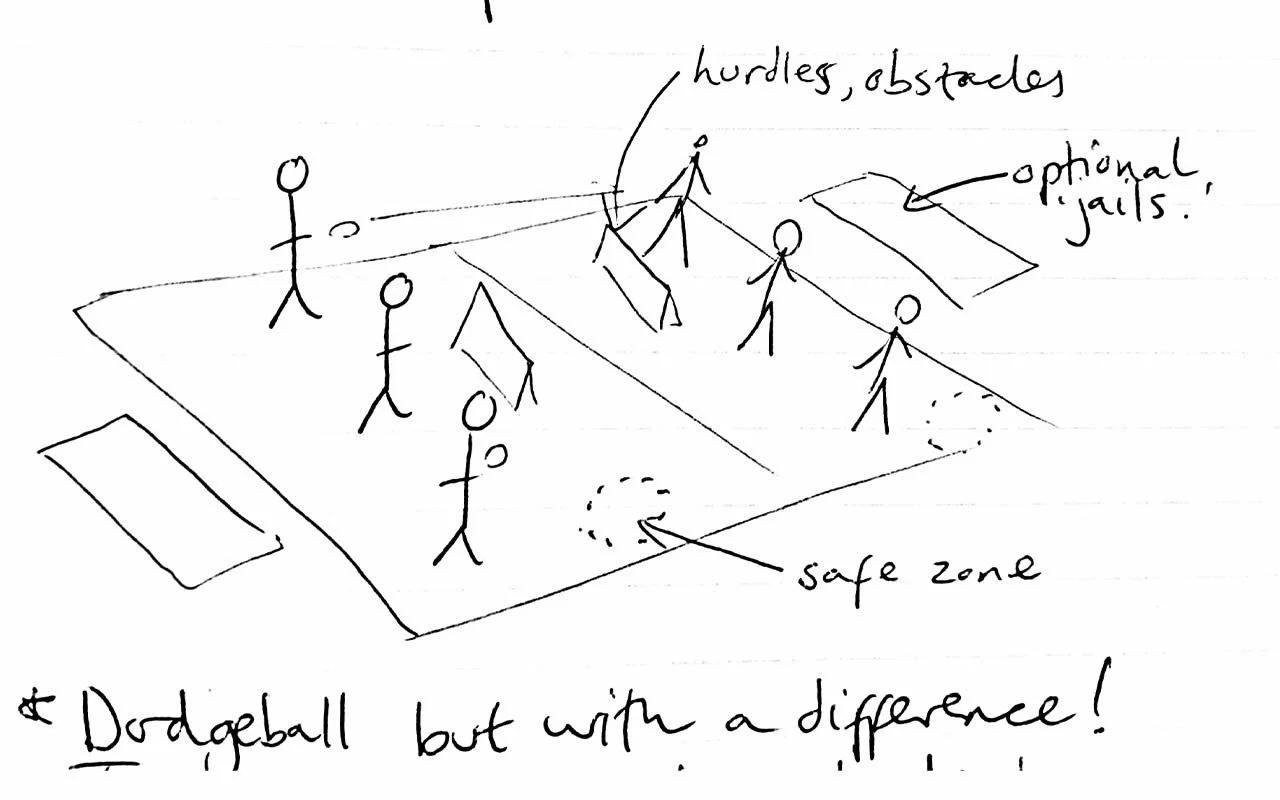 hurdles, obstacles
optional
jails.
safe zone
* Dodgeball but with a difference!